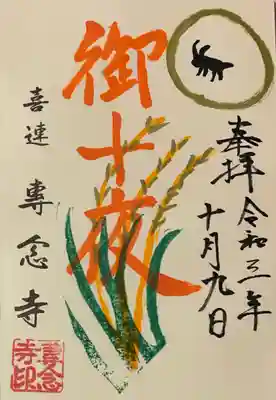 奉拝 令和三年
十月九日
御十夜
喜連 專念寺
專念
寺印